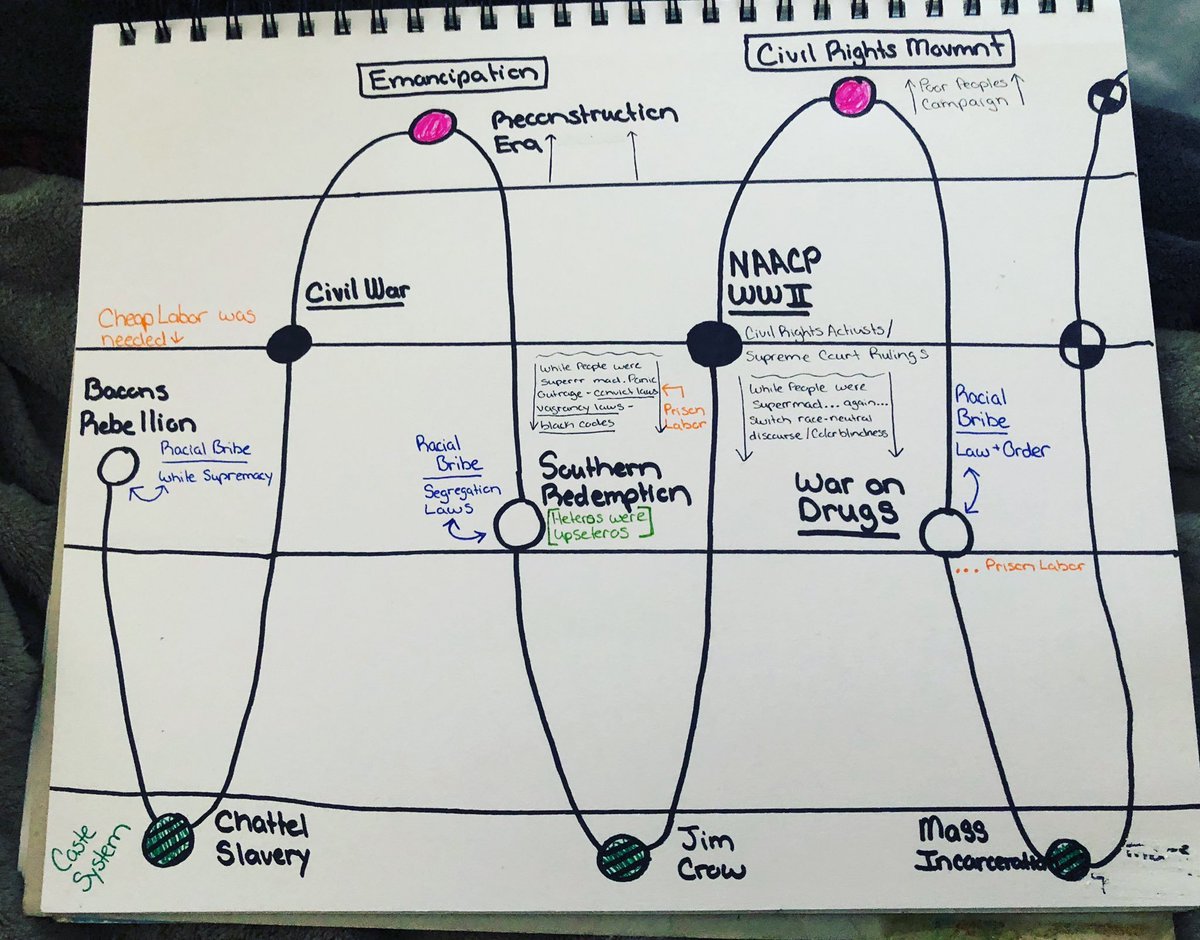 Emancipation
Civil Rights Movmnt
Reconstruction
Era
Poor Peoples
Campaign
Civil War
NAACP
WW II
Cheap Labor was
needed
Civil Rights Activists/
Supreme Court Rulings
Bacons
Rebellion
Racial Bribe
White Supremacy
While People were
Superrr mad. Panic
Outrage - convict laws
vagrancy laws -
black codes
Prison
Labor
While People were
Super mad... again...
Switch race-neutral
discourse/Colorblindness
Racial
Bribe
Law + Order
Racial
Bribe
Segregation
Laws
Southern
Redemption
[Heteros were
upseteros]
War on
Drugs
... Prison Labor
Caste
System
Chattel
Slavery
Jim
Crow
Mass
Incarceration